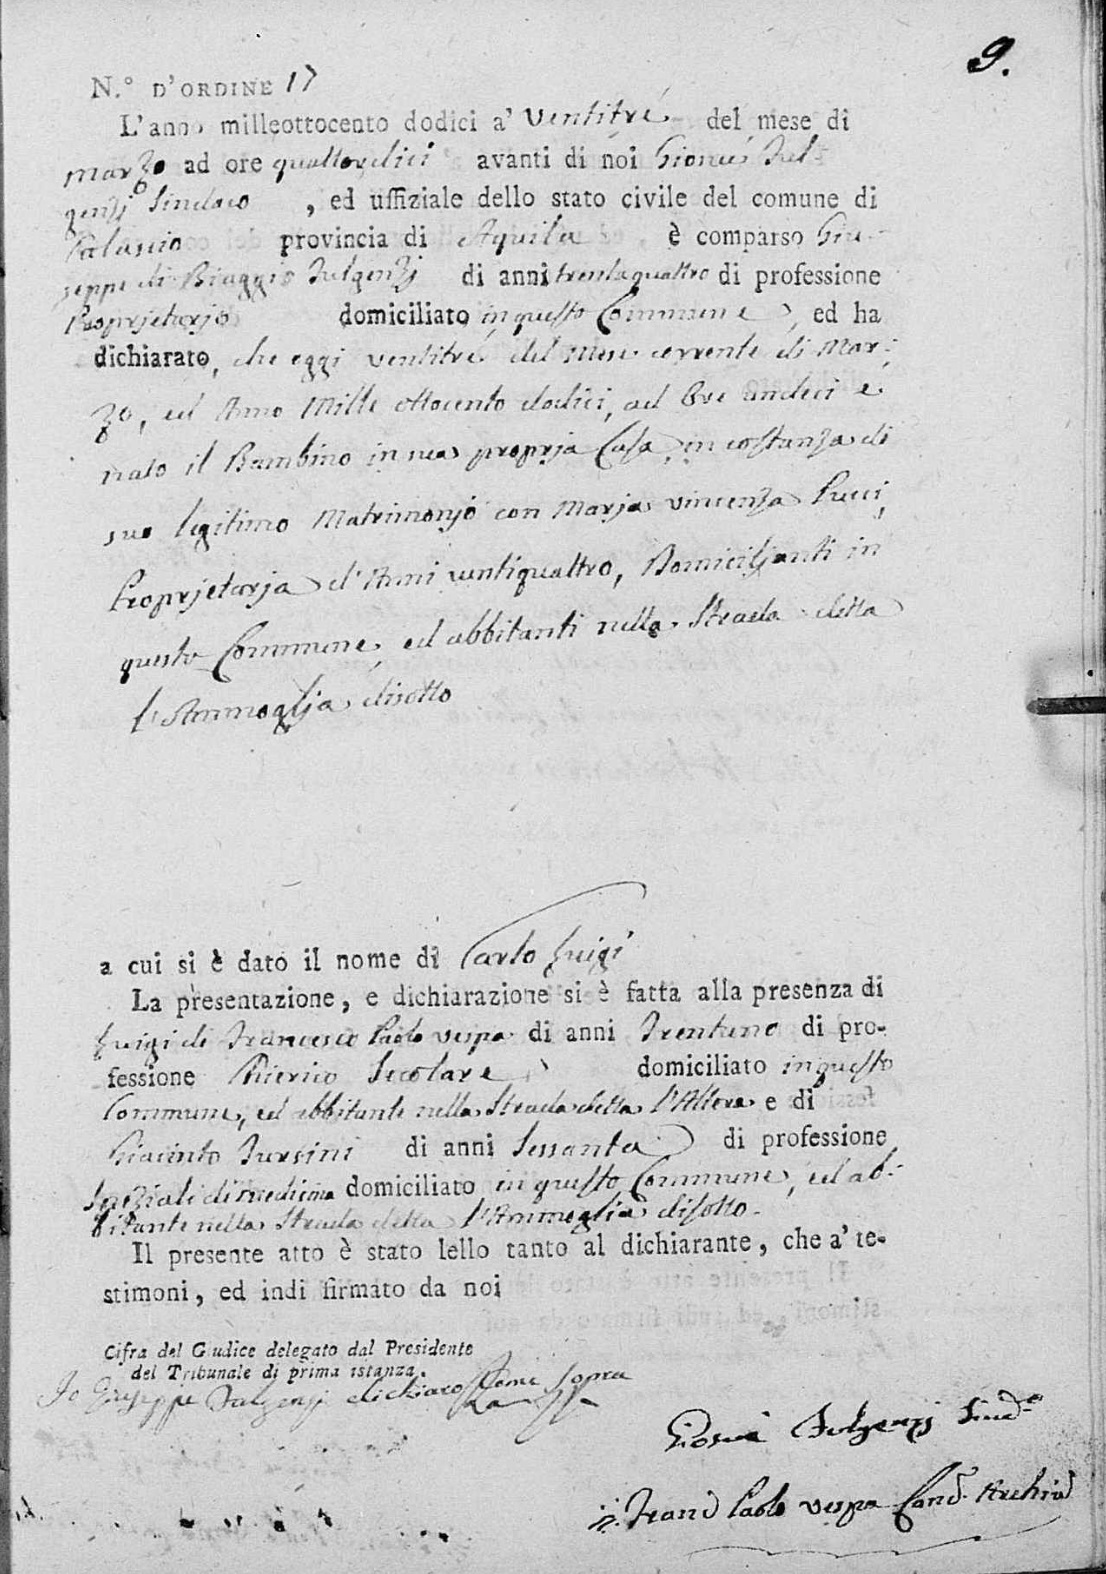 9.
N.° D'ORDINE 17
L'anno milleottocento dodici a' ventitré del mese di
marzo ad ore quattordici avanti di noi Giosuè Ful-
genzj Sindaco , ed uffiziale dello stato civile del comune di
provincia di Aquila , è comparso Giu-
seppe di Biaggio Fulgenzj di anni trentaquattro di professione
Proprjetarjo domiciliato in questo Commune , ed ha
dichiarato, che oggi ventitré del Mese corrente di Mar-
zo, ed Anno Mille ottocento dodici, ad Ore undeci è
nato il Bambino in sua proprja Casa, in costanza di
suo legitimo Matrimonjo con Marja Vincenza Pucci,
Proprjetarja d'Anni ventiquattro, Domiciljanti in
questo Commune, ed abbitanti nella Strada detta
l'Ammoglja disotto
a cui si è dato il nome di Carlo Luigi
La presentazione, e dichiarazione si è fatta alla presenza di
Luigi di Francesco Paolo Vespa di anni Trentuno di pro-
fessione Chierico Secolare domiciliato in questo
Commune, ed abbitante nella Strada detta l'Altera e di
Giacinto Tursini di anni Sessanta di professione
Speziali di medicina domiciliato in questo Commune, ed ab-
bitante nella Strada detta l'Ammoglia disotto.
Il presente atto è stato lello tanto al dichiarante, che a' te-
stimoni, ed indi firmato da noi
Cifra del Giudice delegato dal Presidente
del Tribunale di prima istanza.
Io Giuseppe Fulgenzj dichiaro come sopra
Giosuè Fulgenzj Sind.o
Paolo Vespa Canc. Archiv.